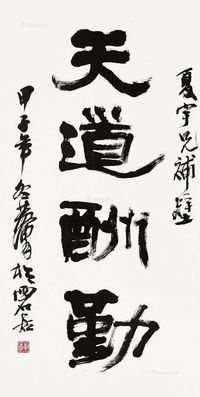 夏宇兄補壁
天道酬勤
甲子年冬